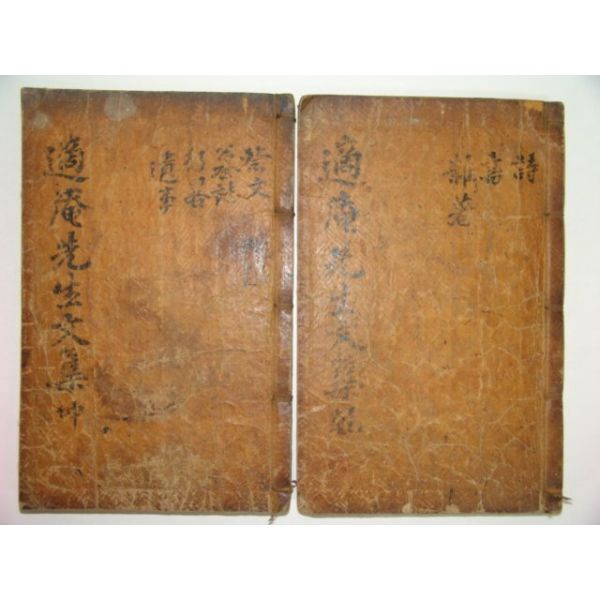 詩
書
雜著
適庵先生文集乾
祭文
墓誌
行狀
遺事
適庵先生文集坤